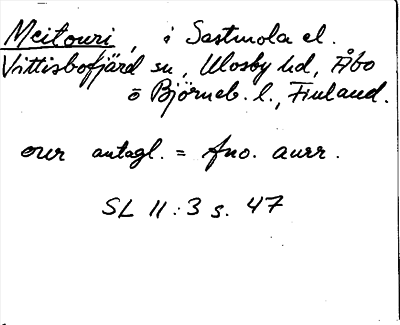 Meitouri, i Sastmola el.
Vittisbofjärd sn, Ulosby hd, Åbo
o Björneb. l., Finland.
our antagl. = fno. auer.
SL II:3 s. 47